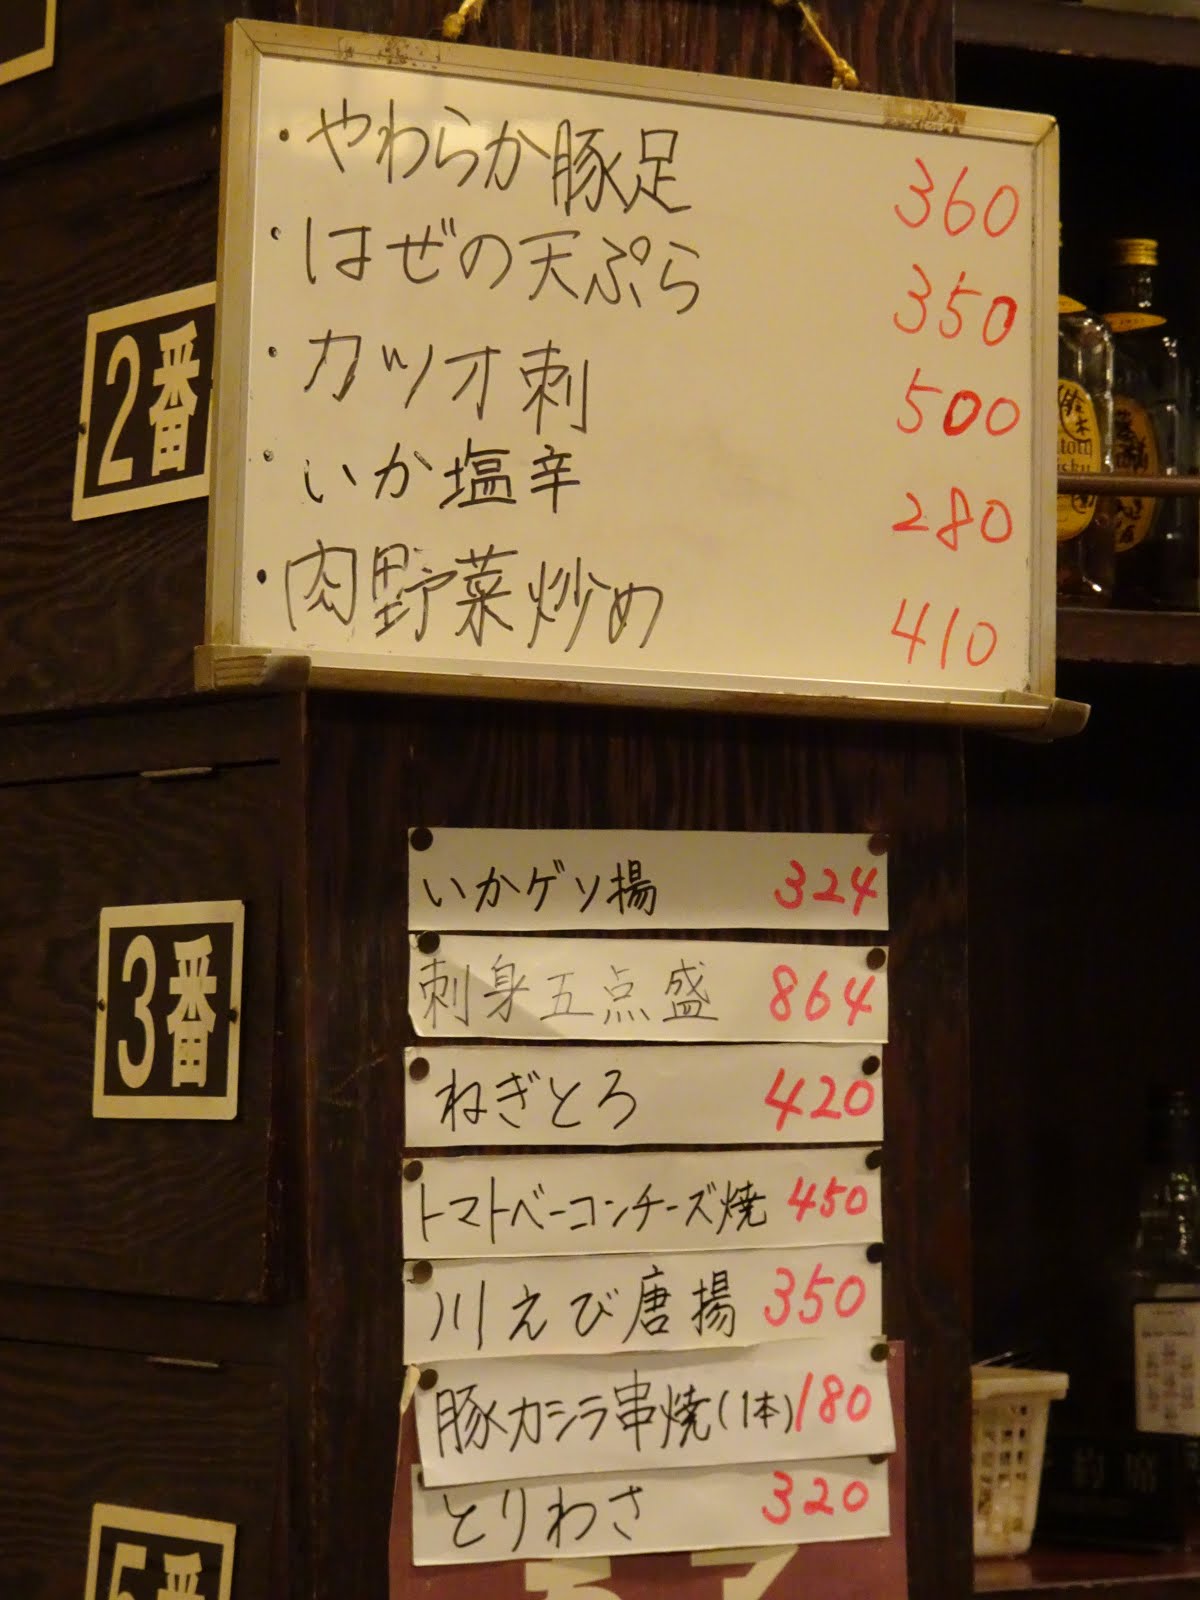 ・やわらか豚足 360
・はぜの天ぷら 350
・カツオ刺 500
・いか塩辛 280
・肉野菜炒め 410
2番
3番
5番
いかゲソ揚 324
刺身五点盛 864
ねぎとろ 420
トマトベーコンチーズ焼 450
川えび唐揚 350
豚カシラ串焼(1本) 180
とりわさ 320